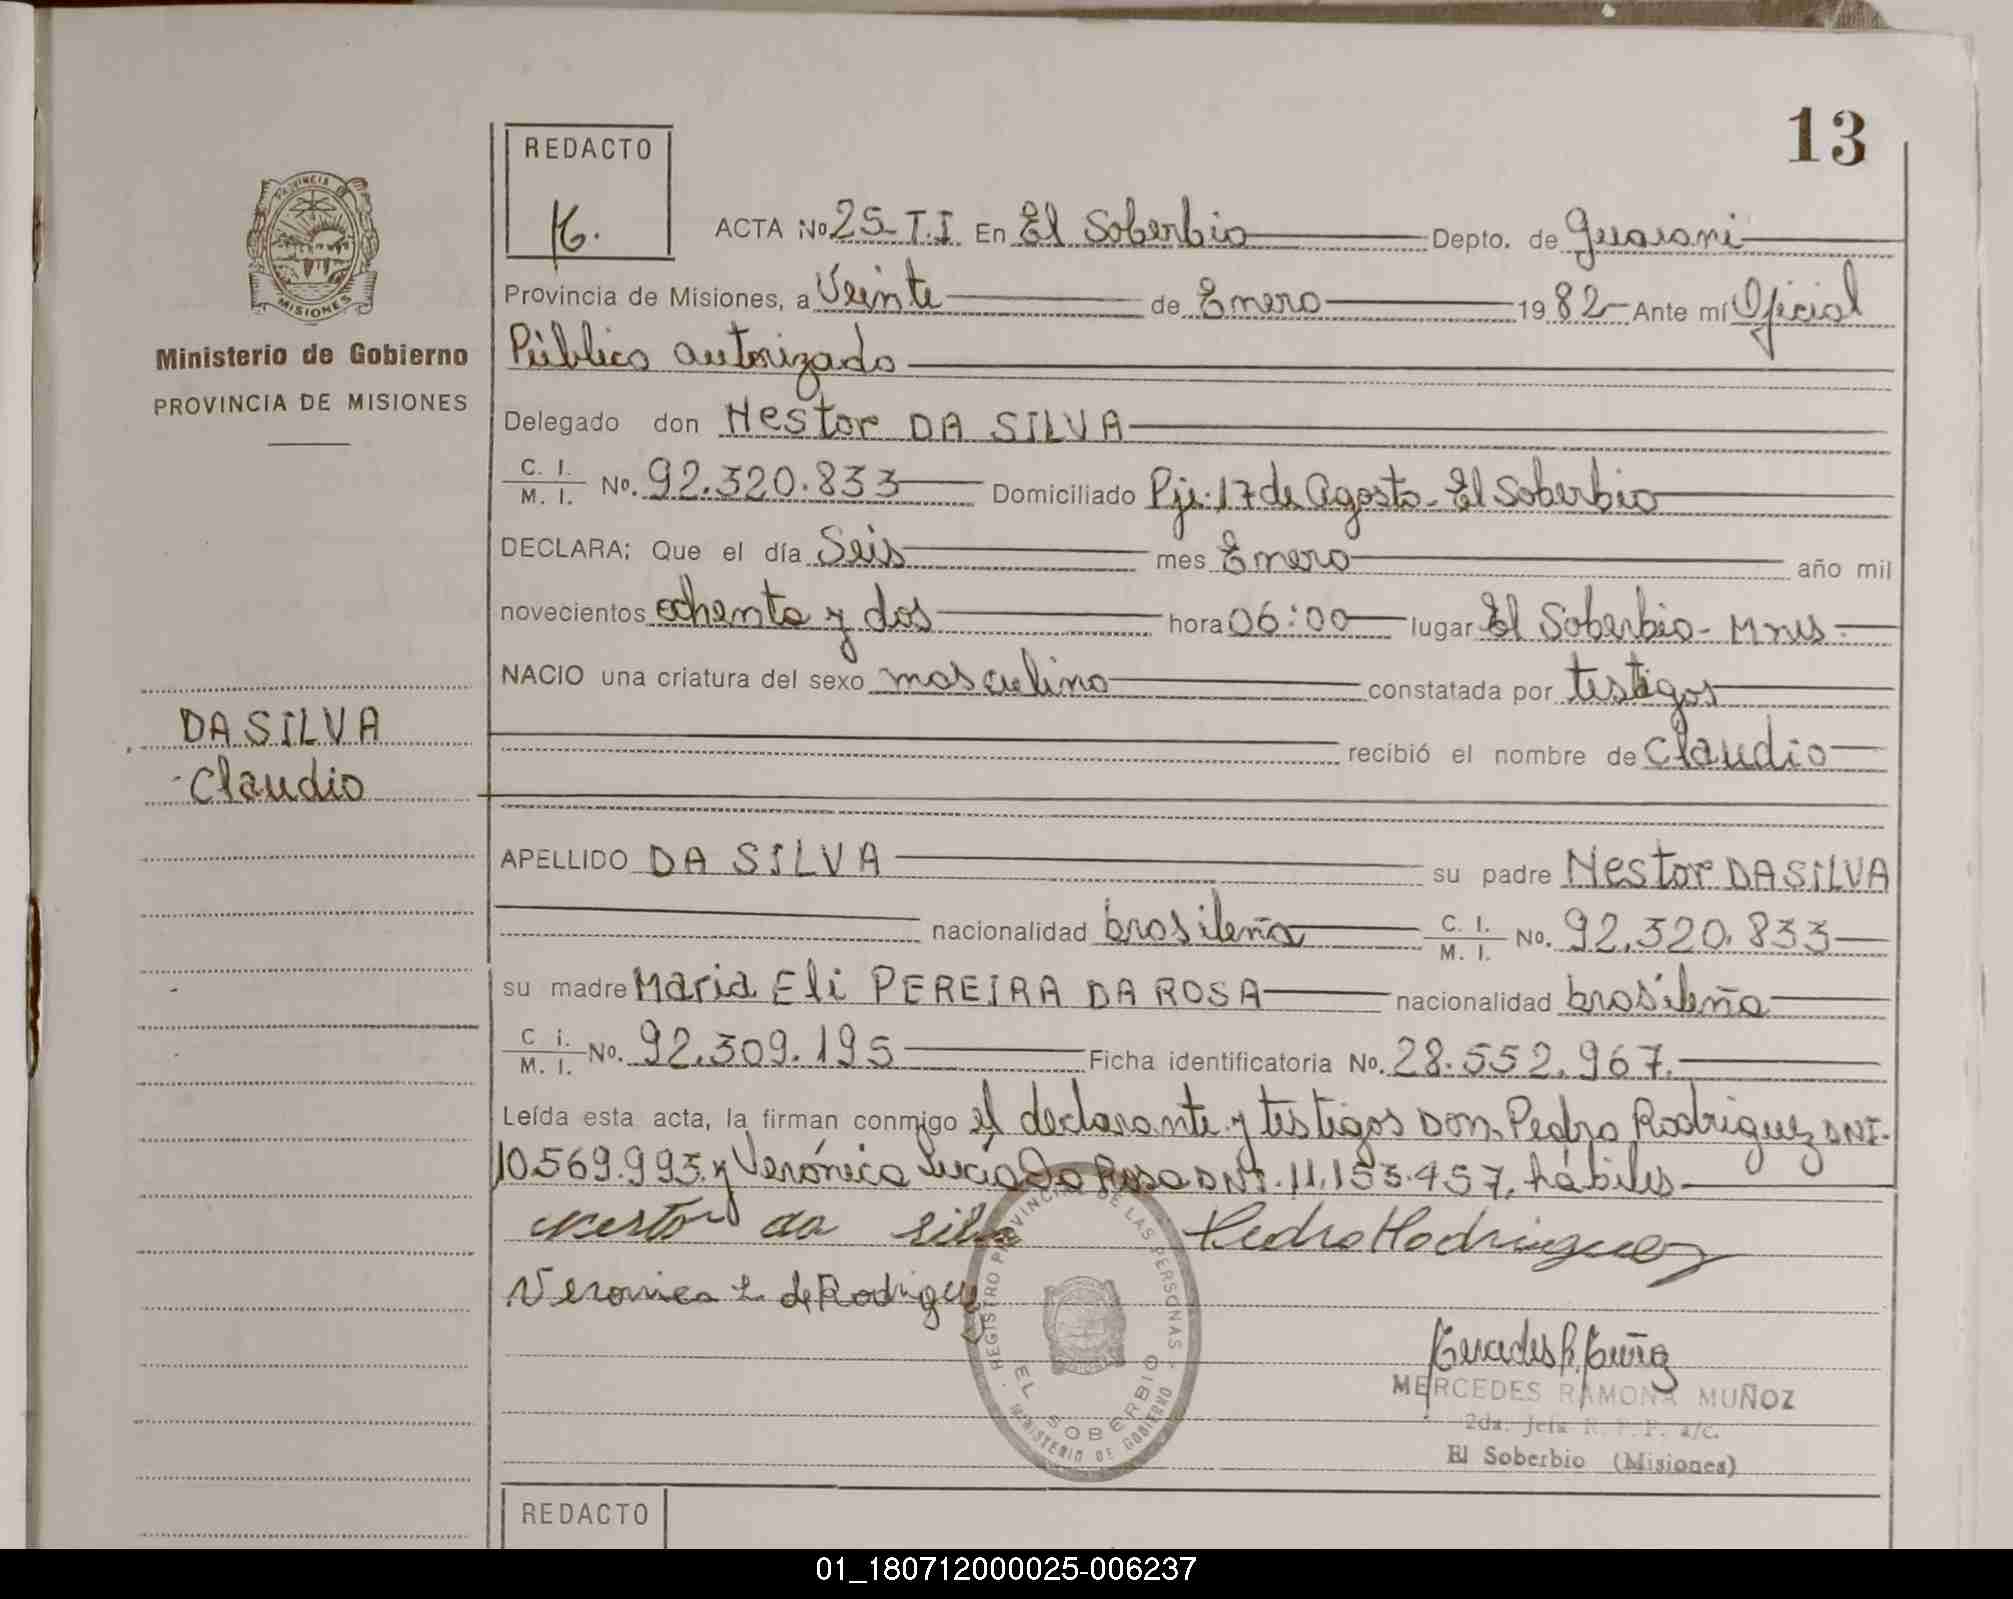 13
REDACTO
K.
ACTA No 25-T.I En El Soberbio Depto. de Guarani
Provincia de Misiones, a Veinte de Enero 1982 Ante mí Oficial
Público autorizado
Delegado don Nestor DA SILVA
C. I. / M. I. No. 92.320.833 Domiciliado Pje. 17 de Agosto - El Soberbio
DECLARA; Que el día Seis mes Enero año mil
novecientos ochenta y dos hora 06:00 lugar El Soberbio - Mnes.
NACIO una criatura del sexo masculino constatada por testigos
recibió el nombre de Claudio
APELLIDO DA SILVA su padre Nestor DA SILVA
nacionalidad brasileña C. I. / M. I. No. 92.320.833
su madre Maria Eli PEREIRA DA ROSA nacionalidad brasileña
C. i. / M. I. No. 92.309.195 Ficha identificatoria No. 28.552.967.
Leída esta acta, la firman conmigo el declarante y testigos Don Pedro Rodriguez DNI.
10.569.993. y Verónica Lucía Da Rosa DNI. 11.153.457, hábiles
Nestor da silva Pedro Rodriguez
Veronica L. de Rodriguez
MERCEDES RAMONA MUÑOZ
2da. Jefa R. P. P. a/c.
El Soberbio (Misiones)
REGISTRO PROVINCIAL DE LAS PERSONAS
EL SOBERBIO
MINISTERIO DE GOBIERNO
PROVINCIA
MISIONES
Ministerio de Gobierno
PROVINCIA DE MISIONES
DA SILVA
Claudio
REDACTO
01_180712000025-006237